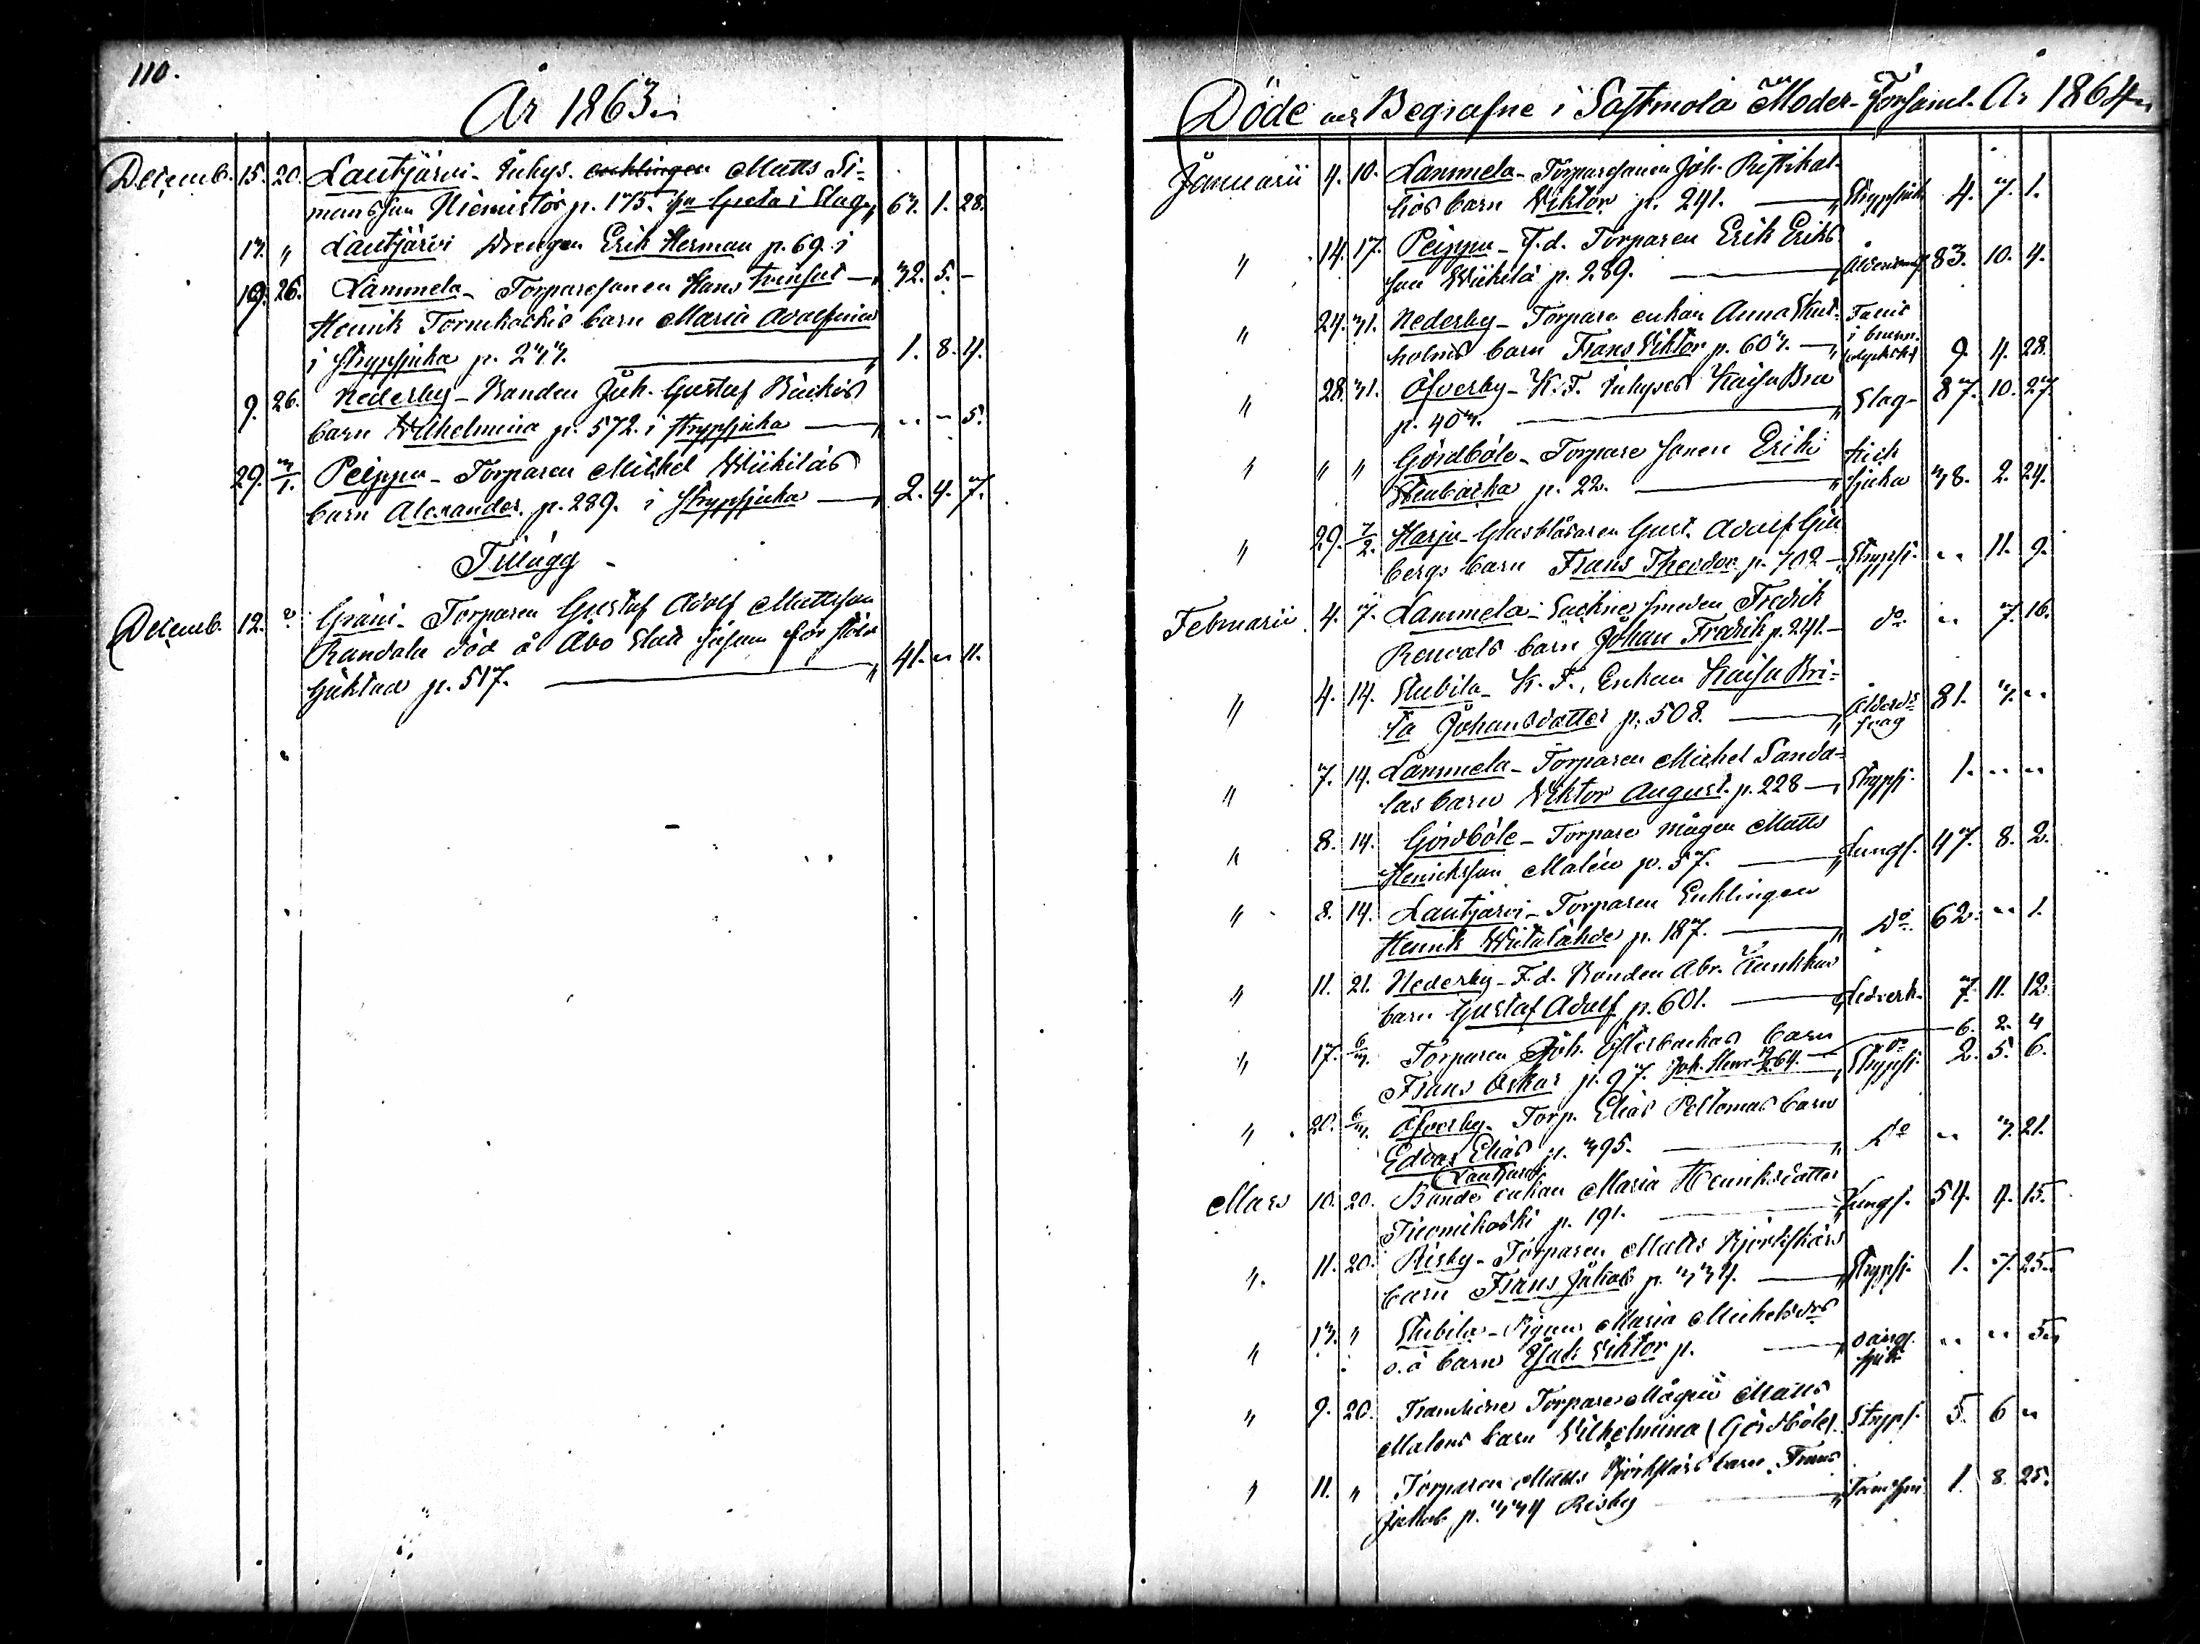 110.
År 1863.
Decemb. 15. 20. Lautjärvi - Inhys. enklingen Matts Si-
mansson Niemistös p. 175. i Slag 63. 1. 28.
17. " Lautjärvi Drengen Erik Herman p. 69. i
32. 5. -
19. 26. Lammela - Torparesonen Hans
Henrik Tornikoskis barn Maria Adolfina
i Strypsjuka p. 233. 1. 8. 4.
9. 26. Nederby - Bonden Joh. Gustaf Bäckis
barn Wilhelmina p. 572. i Strypsjuka " " 5.
29. 3/1. Peippu - Torparen Michel Wiikiläs
barn Alexander p. 289. i Strypsjuka 2. 4. 7.
Tillägg
Decemb. 12. Gräni - Torparen Gustaf Adolf Mattsson
Randala död å Åbo Slott för
p. 517. 41. " 11.
Döde och Begrafne i Sastmola Moder-Församl. År 1864
Januarii 4. 10. Lammela - Torparesonen Joh. Ristikal-
lios barn Viktor p. 241. Strypsjuk 4. 7. 1.
" 14. 17. Peippu - F.d. Torparen Erik Eriks
son Wiikilä p. 289. 83. 10. 4.
" 24. 31. Nederby - Torpare enkan Anna
holms barn Frans Viktor p. 603. i brunn 9. 4. 28.
" 28. 31. Öfverby - K.F. Inhyses Kaisa Brita
p. 403. Slag 87. 10. 27.
" " " Gårdböle - Torpare sonen Erik
Stenbacka p. 22. sjuka 38. 2. 24.
" 29. 7/2. Harju - Glasblåsaren Gust. Adolf
bergs barn Frans Theodor p. 702 Strypsj. " 11. 9.
Februarii 4. 7. Lammela - Fredrik
barn Johan Fredrik p. 241. do " 7. 16.
" 4. 14. Stubila - K.F. Enkan Kaisa Bri-
ta Johansdotter p. 508. Ålderds 81. 3. "
" 7. 14. Lammela - Torparen Michel Sanda-
las barn Viktor August p. 228 Strypsj. 1. " "
" 8. 14. Gårdböle - Torpare mågen Matts
Henriksson Malén p. 57. Lungs. 47. 8. 2.
" 8. 14. Lautjärvi - Torparen Enklingen
Henrik Wiitalähde p. 187. Do 62. " 1.
" 11. 21. Nederby - F.d. Bonden Abr.
barn Gustaf Adolf p. 601. Ledverk. 7. 11. 12.
" 17. 6/3. Torparen Joh. Österbackas barn do 6. 2. 4
Frans Oskar p. 97. Joh. Henr. Strypsj. 2. 5. 6.
" 20. 6/3. Öfverby - Torp. Elias Peltomas barn
Edvard Elias p. 395. Do " 3. 21.
Lautjärvi
Mars 10. 20. Bonde enkan Maria Henriksdotter
p. 191. Lungs. 54. 4. 15.
" 11. 20. Risby - Torparen Matts Björkskärs
barn Frans Jakob p. 334. Strypsj. 1. 7. 25.
" 13. " Stubila - Pigan Maria Michelsdrs
o.ä barn Isak Viktor p. " " 5.
" 9. 20. Torpare Mågen Matts
Malens barn Vilhelmina (Gårdböle) Stryps. 5. 6 "
" 11. " Torparen Matts Björkskärs barn Frans
Jakob p. 334 Risby 1. 8. 25.